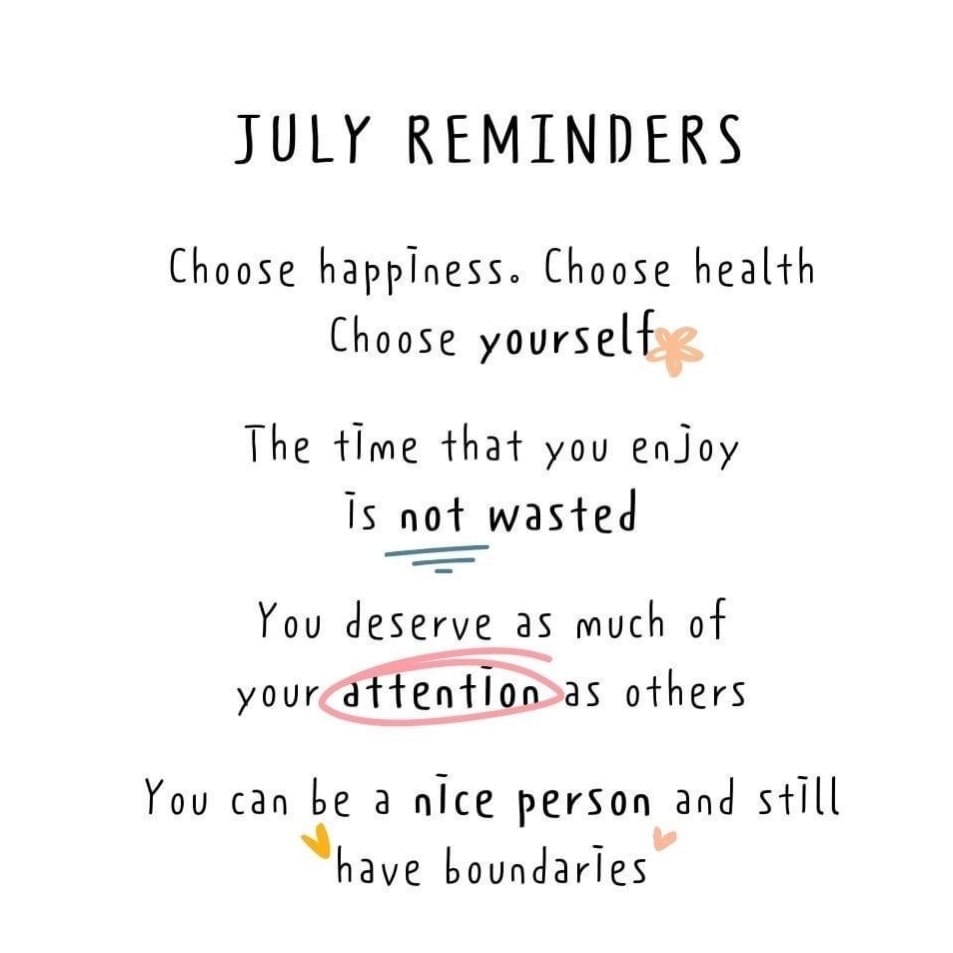 JULY REMINDERS
Choose happiness. Choose health
Choose yourself
The time that you enjoy
is not wasted
You deserve as much of
your attention as others
You can be a nice person and still
have boundaries